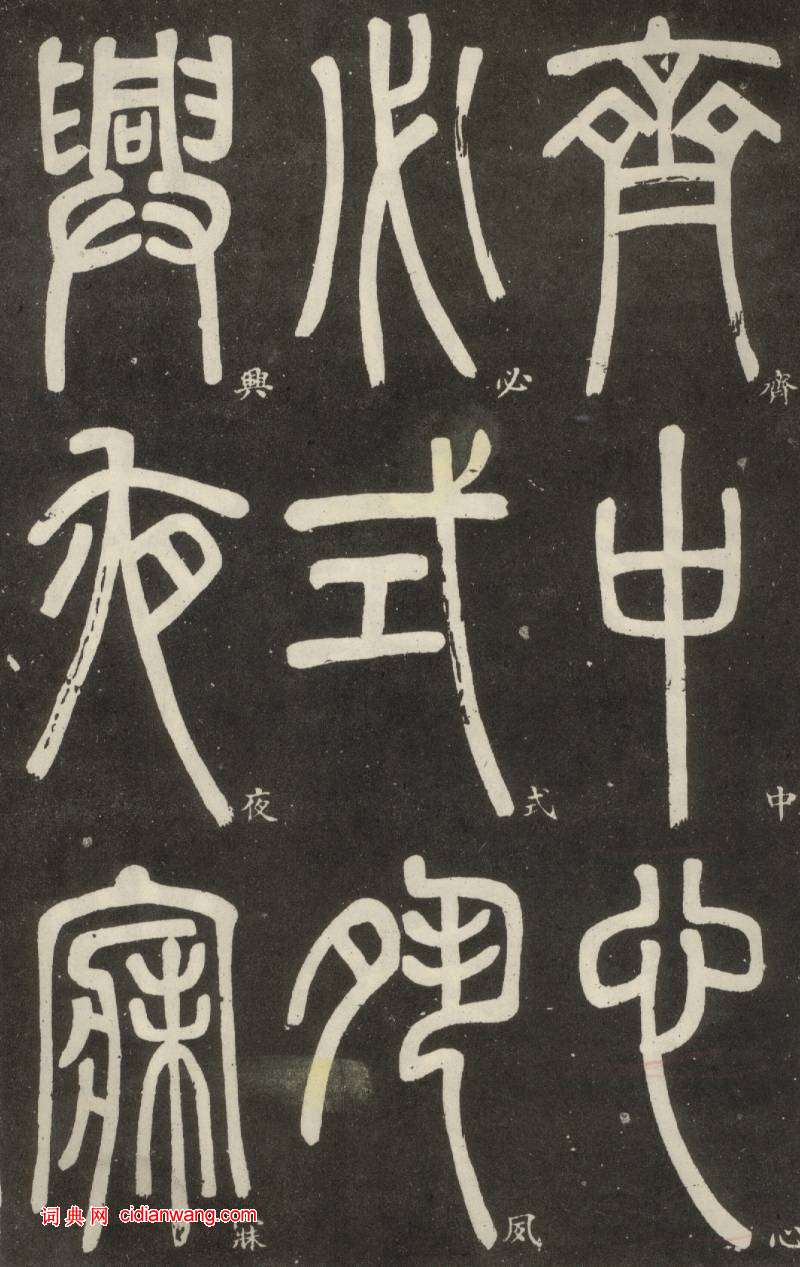 齊中心
必式夙
興夜寐
齊
中
心
必
式
夙
興
夜
词典网 cidianwang.com